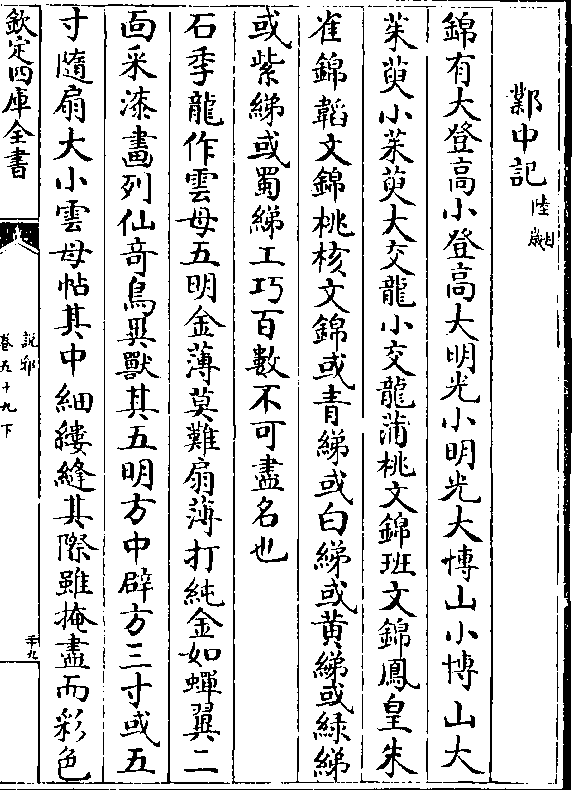 鄴中記陸翽
錦有大登高小登高大明光小明光大博山小博山大
茱萸小茱萸大交龍小交龍蒲桃文錦班文錦鳳皇朱
雀錦韜文錦桃核文錦或青綈或白綈或黄綈或緑綈
或紫綈或蜀綈工巧百數不可盡名也
石季龍作雲母五明金薄莫難扇薄打純金如蟬翼二
面采漆畫列仙奇鳥異獸其五明方中辟方三寸或五
寸隨扇大小雲母帖其中細縷縫其際雖掩盡而彩色
欽定四庫全書
說郛
卷五十九下